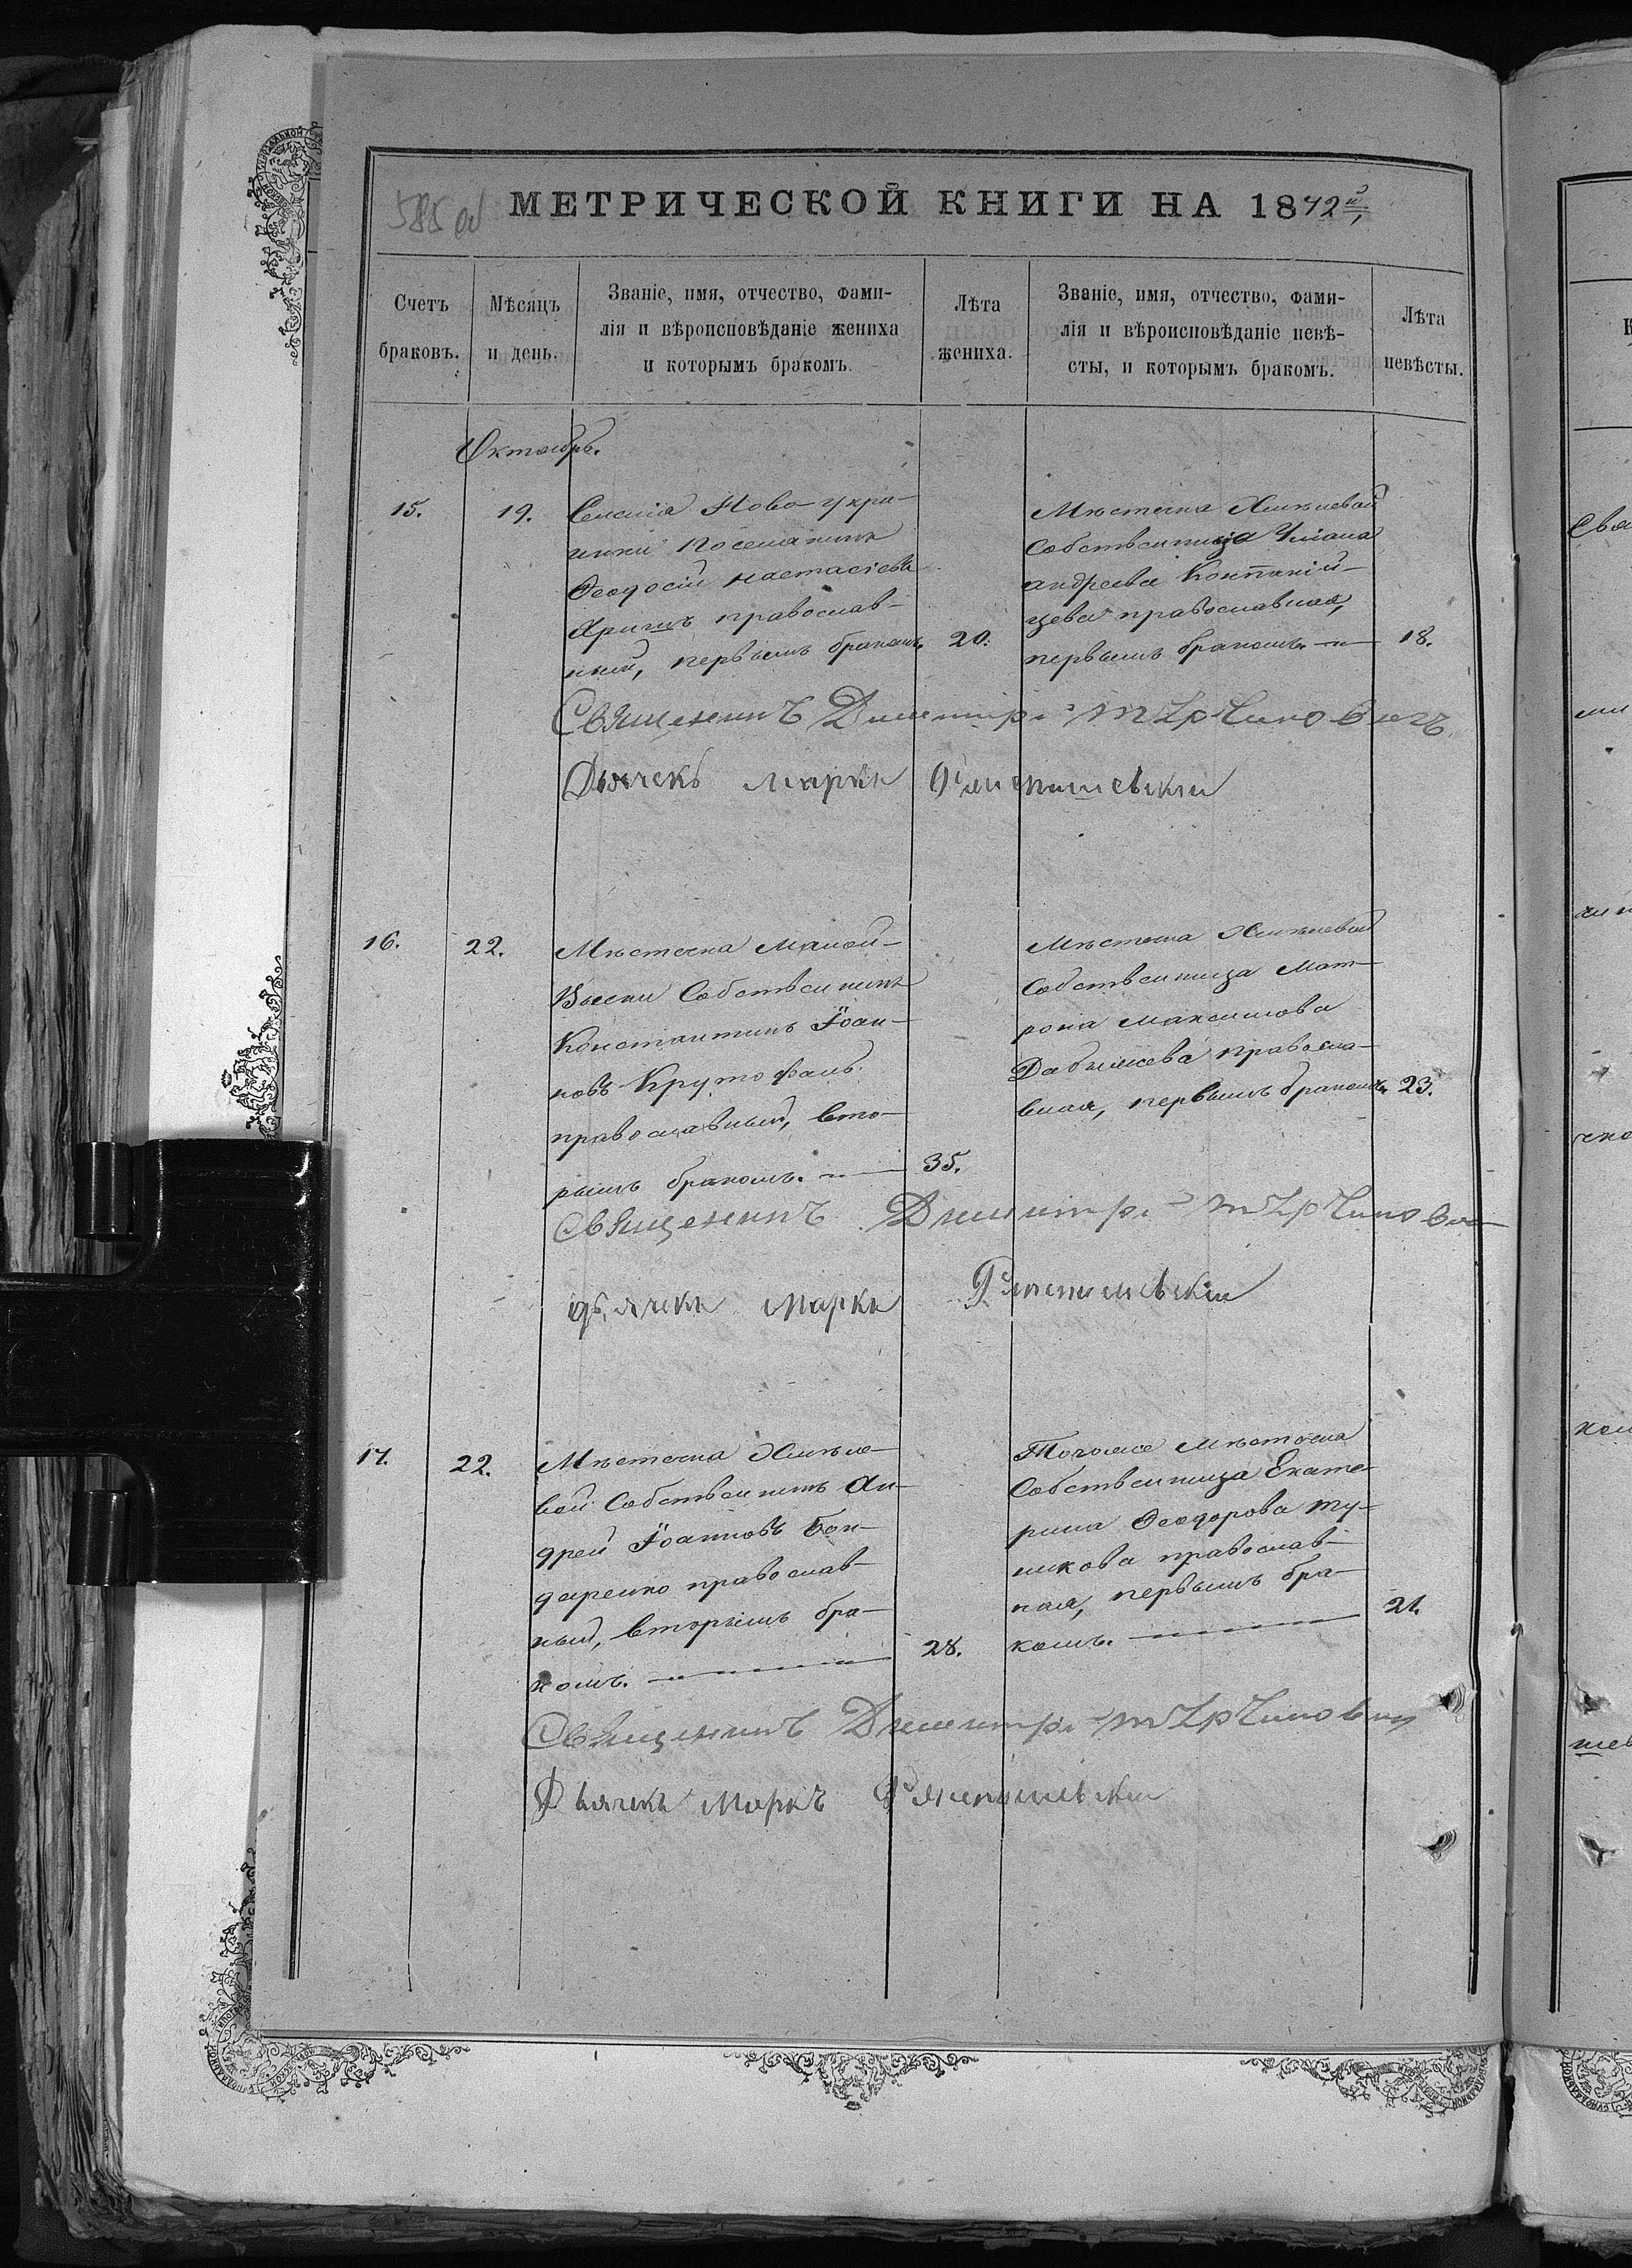 585 об
МЕТРИЧЕСКОЙ КНИГИ НА 1872й,
Счетъ браковъ.
Мѣсяцъ и день.
Званіе, имя, отчество, фами-
лія и вѣроисповѣданіе жениха
и которымъ бракомъ.
Лѣта жениха.
Званіе, имя, отчество, фами-
лія и вѣроисповѣданіе невѣ-
сты, и которымъ бракомъ.
Лѣта невѣсты.
Октобрь.
15.
19.
Селенія Ново-укра-
инки поселянинъ
Феодосій
православ-
ный, первымъ бракомъ.
20.
Мѣстечка Хмѣлевой
Собственница
андреева
православная,
первымъ бракомъ.
18.
Священникъ Димитрі
Дьячекъ Маркъ
16.
22.
Мѣстечка Малой-
Выски Собственникъ
Константинъ Іоан-
новъ Крутофалъ
православный, вто-
рымъ бракомъ.
35.
Мѣстечка Хмѣлевой
Собственница Мат-
рона Максимова
православ-
вная, первымъ бракомъ.
23.
Священникъ Димитрі
дьячекъ Маркъ
17.
22.
Мѣстечка Хмѣле-
вой Собственникъ Ан-
дрей Іоанновъ Бон-
даренко православ-
ный, вторымъ бра-
комъ.
28.
Того же мѣстечка
Собственница Екате-
рина Феодорова Ту-
никова православ-
ная, первымъ бра-
комъ.
21.
Священникъ Димитрі
Дьячекъ Маркъ